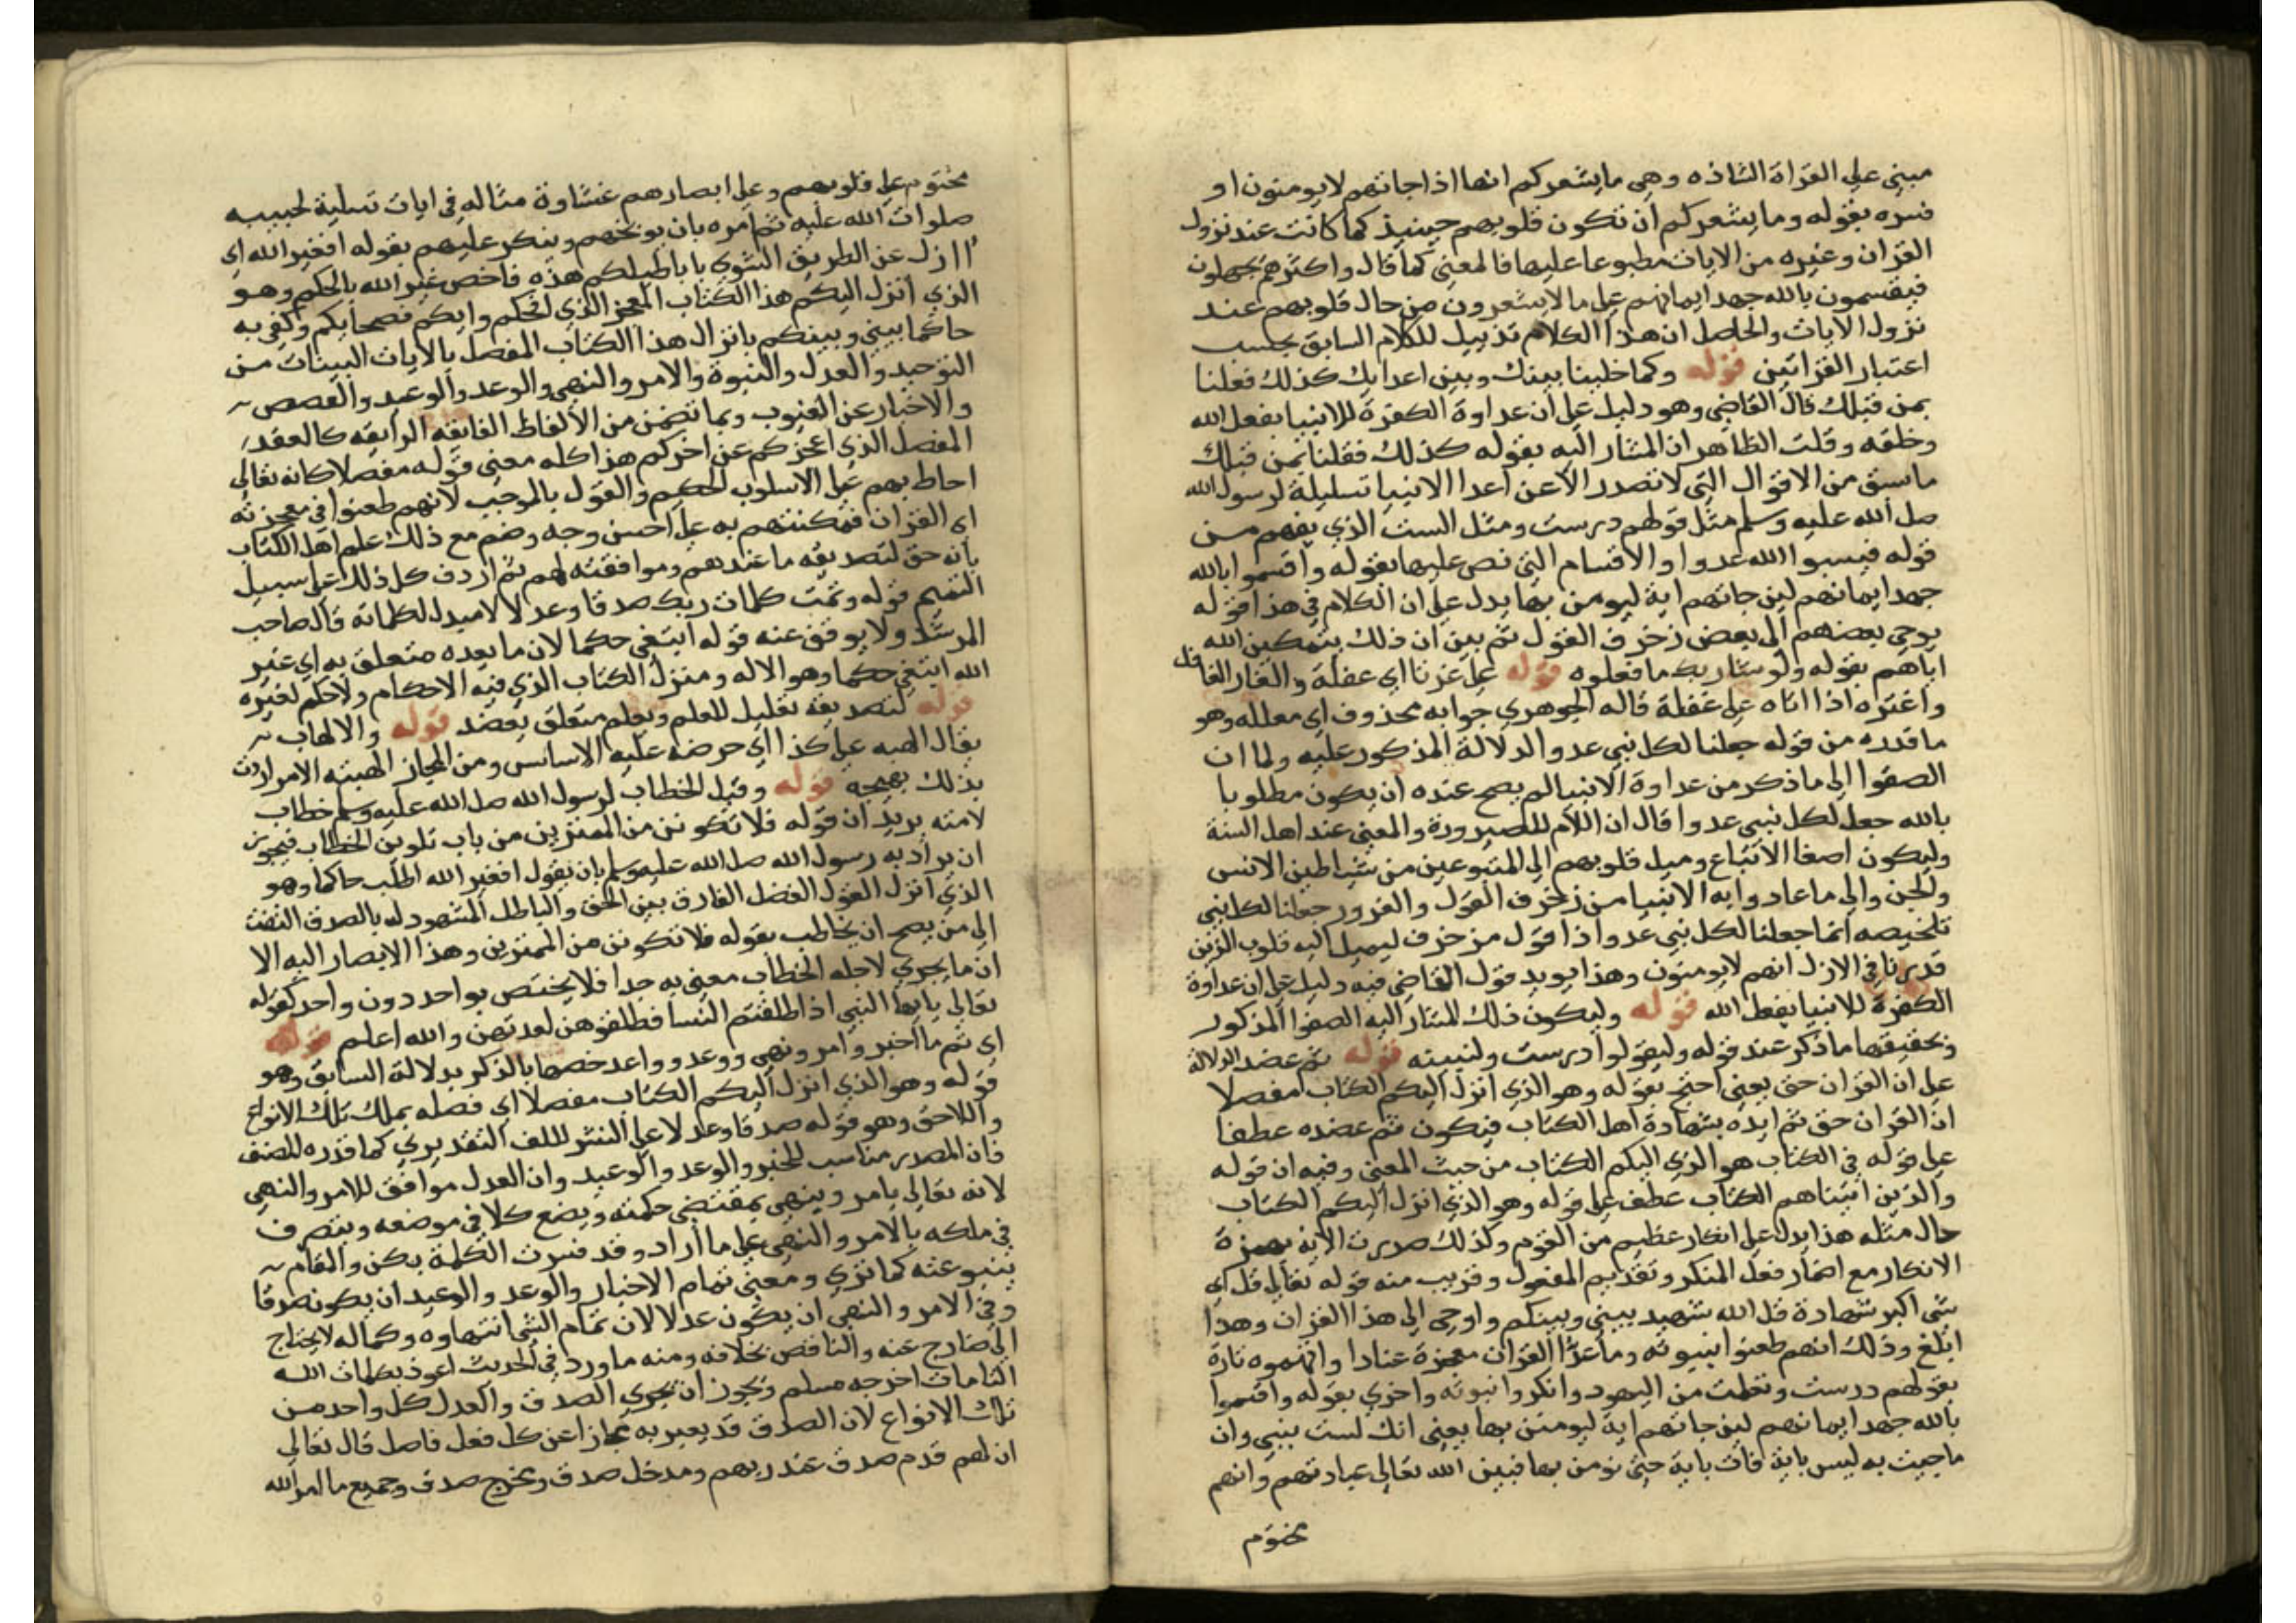 مبني على القراة الشاذه وهي ما يشعركم انها اذا جاتهم لا يومنون او
فسره بقوله وما يشعركم ان تكون قلوبهم حينيذ كما كانت عند نزول
القران وغيره من الايات مطبوعا عليها فالمعنى كما قال واكثرهم يجهلون
فيقسمون بالله جهد ايمانهم على ما لا يشعرون من حال قلوبهم عند
نزول الايات والحاصل ان هذا الكلام تذييل للكلام السابق بحسب
اعتبار القراتين قوله وكما خلينا بينك وبين اعدايك كذلك فعلنا
بمن قبلك قال القاضي وهو دليل على ان عداوة الكفرة للانبيا بفعل الله
وخلقه وقلت الظاهر ان المشار اليه بقوله كذلك فقلنا بمن قبلك
ما سبق من الاقوال التي لا تصدر الا عن اعدا الانبيا تسليلة لرسول الله
صلى الله عليه وسلم مثل قولهم درست ومثل السب الذي يفهم من
قوله فيسبوا الله عدوا والاقسام التي نص عليها بقوله واقسموا بالله
جهد ايمانهم لين جاتهم اية ليومنن بها يدل على ان الكلام في هذا قوله
يوحي بعضهم الى بعض زخرف القول ثم بين ان ذلك بتمكين الله
اياهم بقوله ولو شا ربك ما فعلوه قوله على غرنا اي غفلة والغار الغافل
واغتره اذا اتاه على غفلة قاله الجوهري جوابه محذوف اي معلله وهو
ما قدره من قوله جعلنا لكل نبي عدوا لدلالة المذكور عليه ولما ان
الصغوا الى ما ذكر من عداوة الانبيا لم يصح عنده ان يكون مطلوبا
بالله جعل لكل نبي عدوا قال ان اللام للصيرورة والمعنى عند اهل السنة
وليكون اصغا الاتباع وميل قلوبهم الى المتبوعين من شياطين الانس
والجن والى ما عادوا به الانبيا من زخرف القول والغرور جعلنا لكل نبي
تلخيصه انما جعلنا لكل نبي عدوا ذا قول مزخرف ليميل اليه قلوب الذين
قدرنا في الازل انهم لا يومنون وهذا يويد قول القاضي فيه دليل على ان عداوة
الكفرة للانبيا بفعل الله قوله وليكون ذلك المشار اليه الصغوا المذكور
وتحقيقها ما ذكر عند قوله وليقولوا درست ولنبينه قوله ثم عضد الدلالة
على ان القران حق يعني احتج بقوله وهو الذي انزل اليكم الكتاب مفصلا
ان القران حق ثم ايده بشهادة اهل الكتاب فيكون ثم عضده عطفا
على قوله في الكتاب هو الذي اليكم الكتاب من حيث المعنى وفيه ان قوله
والذين اتيناهم الكتاب عطف على قوله وهو الذي انزل اليكم الكتاب
حال مثله هذا يدل على انكار عظيم من القوم ولذلك صدرت الاية بهمزة
الانكار مع اضمار فعل المنكر وتقديم المفعول وقريب منه قوله تعالى قل اي
شي اكبر شهادة قل الله شهيد بيني وبينكم واوحي الى هذا القران وهذا
ابلغ وذلك انهم طعنوا بنبوته وما عدوا القران معجزة عنادا واتهموه تارة
بقولهم درست وتعلمت من اليهود وانكروا نبوته واخرى بقوله واقسموا
بالله جهد ايمانهم لين جاتهم اية ليومنن بها يعني انك لست بنبي وان
ما جيت به ليس باية فات باية حتى نومن بها فبين الله تعالى عبادتهم وانهم
مختوم
مختوم على قلوبهم وعلى ابصارهم غشاوة مثاله في ايات تسلية لحبيبه
صلوات الله عليه ثم امره بان يوبخهم وينكر عليهم بقوله افغير الله اي
اازل عن الطريق السوي باباطيلكم هذه فاخص غير الله بالحكم وهو
الذي انزل اليكم هذا الكتاب المعجز الذي افحكم وابكم فصحايكم وكفى به
حاكما بيني وبينكم بانزال هذا الكتاب المفصل بالايات البينات من
التوحيد والعدل والنبوة والامر والنهي والوعد والوعيد والقصص
والاخبار عن الغيوب وبما تضمن من الالفاظ الفايقه الرايقه كالعقد
المفصل الذي اعجزكم عن اخركم هذا كله معنى قوله مفصلا كانه تعالى
احاط بهم على الاسلوب الحكيم والقول بالموجب لانهم طعنوا في معجزته
اي القران فمكنتهم به على احسن وجه وضم مع ذلك علم اهل الكتاب
بانه حق لتصديقه ما عندهم وموافقته لهم ثم اردف كل ذلك على سبيل
التتميم قوله وتمت كلمات ربك صدقا وعدلا لا مبدل لكلماته قال صاحب
المرشد ولا يوقف عنه قوله ابتغي حكما لان ما بعده متعلق به اي غير
الله ابتغي حكما وهو الاله ومنزل الكتاب الذي فيه الاحكام ولا حكم لغيره
قوله لتصديقه تعليل للعلم ويعلم متعلق بعضد قوله والالهاب
يقال الهبه على كذا اي حرضه عليه الاساس ومن المجاز الهبته الامر اردت
بذلك بهيجه قوله وقيل الخطاب لرسول الله صلى الله عليه وسلم خطاب
لامته يريد ان قوله فلا تكونن من الممترين من باب تلوين الخطاب فيجوز
ان يراد به رسول الله صلى الله عليه وسلم بان يقول افغير الله اطلب حاكما وهو
الذي انزل القول الفصل الفارق بين الحق والباطل المشهود له بالصدق التفت
الى من يصح ان يخاطب بقوله فلا تكونن من الممترين وهذا الايصار اليه الا
ان ما يجري لاجله الخطاب معنى به جدا فلا يختص بواحد دون واحد كقوله
تعالى يا ايها النبي اذا طلقتم النسا فطلقوهن لعدتهن والله اعلم قوله
اي تم ما اخبر وامر ونهي ووعد وواعد خصها بالذكر بدلالة السابق وهو
قوله وهو الذي انزل اليكم الكتاب مفصلا اي فصله بملك تلك الانواع
واللاحق وهو قوله صدقا وعدلا على النشر لللف التقديري كما قدره المصنف
فان المصدر مناسب للخبر والوعد والوعيد وان العدل موافق للامر والنهي
لانه تعالى يامر وينهي بمقتضى حكمته ويضع كلا في موضعه ويتصرف
في ملكه بالامر والنهي على ما اراد وقد فسرت الكلمة بكن والقام
ينبو عنه كما ترى ومعنى تمام الاخبار والوعد والوعيد ان يكون صدقا
وفي الامر والنهي ان يكون عدلا لان تمام الشي انتهاوه وكماله لا يحتاج
الى خارج عنه والناقص بخلافه ومنه ما ورد في الحديث اعوذ بكلمات الله
التامات اخرجه مسلم ويجوز ان يجري الصدق والعدل كل واحد من
تلك الانواع لان الصدق قد يعبر به مجازا عن كل فعل فاضل قال تعالى
ان لهم قدم صدق عند ربهم ومدخل صدق ومخرج صدق وجميع ما امر الله